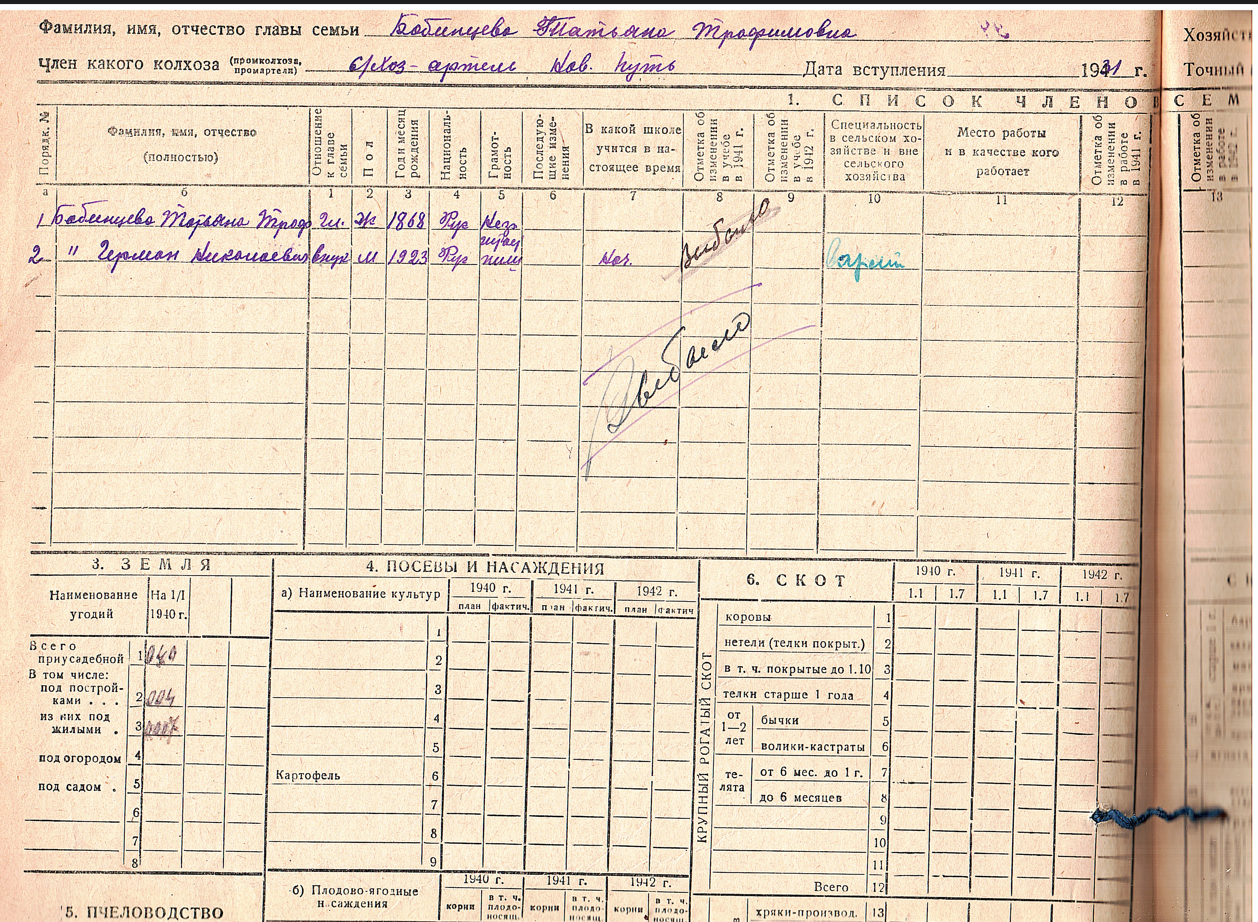 Фамилия, имя, отчество главы семьи Бабинцева Татьяна Трофимовна
Член какого колхоза (промколхоза, промартели) с/хоз-артель Нов. Путь Дата вступления 1931 г.
Хозяйст
Точный
1. СПИСОК ЧЛЕНОВ СЕМ
Порядк. №
Фамилия, имя, отчество (полностью)
Отношение к главе семьи
Пол
Год и месяц рождения
Националь-
ность
Грамот-
ность
Последую-
щие изме-
нения
В какой школе
учится в на-
стоящее время
Отметка об изменении в учебе в 1941 г.
Отметка об изменении в учебе в 1942 г.
Специальность
в сельском хо-
зяйстве и вне
сельского
хозяйства
Место работы
и в качестве кого
работает
Отметка об изменении в работе в 1941 г.
Отметка об изменении в работе в 1942 г.
а б 1 2 3 4 5 6 7 8 9 10 11 12 13
1 Бабинцева Татьяна Троф гл. Ж 1868 Рус Нег
2 " Герман Николаевич внук М 1923 Рус
Выбыло
Выбыло
3. ЗЕМЛЯ
Наименование угодий
На 1/I 1940 г.
Всего
приусадебной 1
В том числе:
под построй-
ками . . . 2 004
из них под
жилыми . 3
под огородом 4
под садом . 5
6
7
8
5. ПЧЕЛОВОДСТВО
4. ПОСЕВЫ И НАСАЖДЕНИЯ
а) Наименование культур
1940 г. 1941 г. 1942 г.
план фактич. план фактич. план фактич
1
2
3
4
5
Картофель 6
7
8
9
б) Плодово-ягодные
насаждения
1940 г. 1941 г. 1942 г.
корни в т. ч. плодо-носящ. корни в т. ч. плодо-носящ. корни в т. ч. плодо-носящ.
6. СКОТ
1940 г. 1941 г. 1942 г.
1.1 1.7 1.1 1.7 1.1 1.7
КРУПНЫЙ РОГАТЫЙ СКОТ
коровы 1
нетели (телки покрыт.) 2
в т. ч. покрытые до 1.10 3
телки старше 1 года 4
от 1—2 лет
бычки 5
волики-кастраты 6
те-
лята
от 6 мес. до 1 г. 7
до 6 месяцев 8
9
10
11
Всего 12
хряки-производ. 13